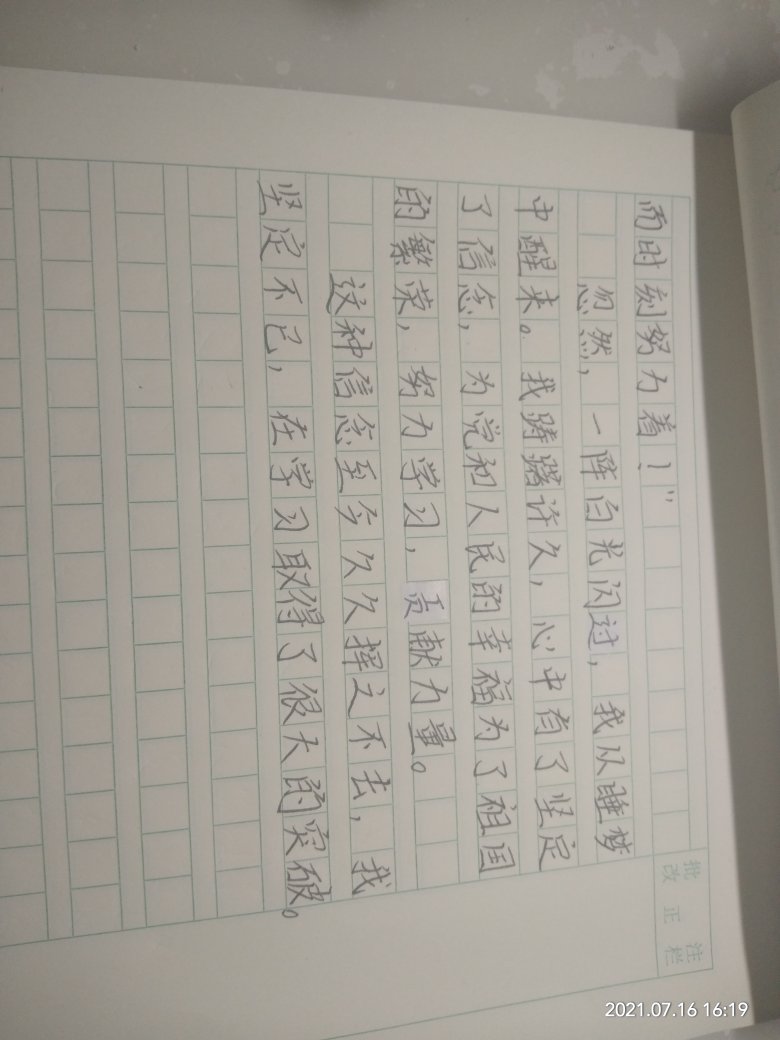 而时刻努力着！”
忽然，一阵白光闪过，我从睡梦
中醒来。我踌躇许久，心中有了坚定
了信念，为党和人民的幸福为了祖国
的繁荣，努力学习，贡献力量。
这种信念至今久久挥之不去，我
坚定不已，在学习取得了很大的突破。
批改正栏
注
2021.07.16 16:19